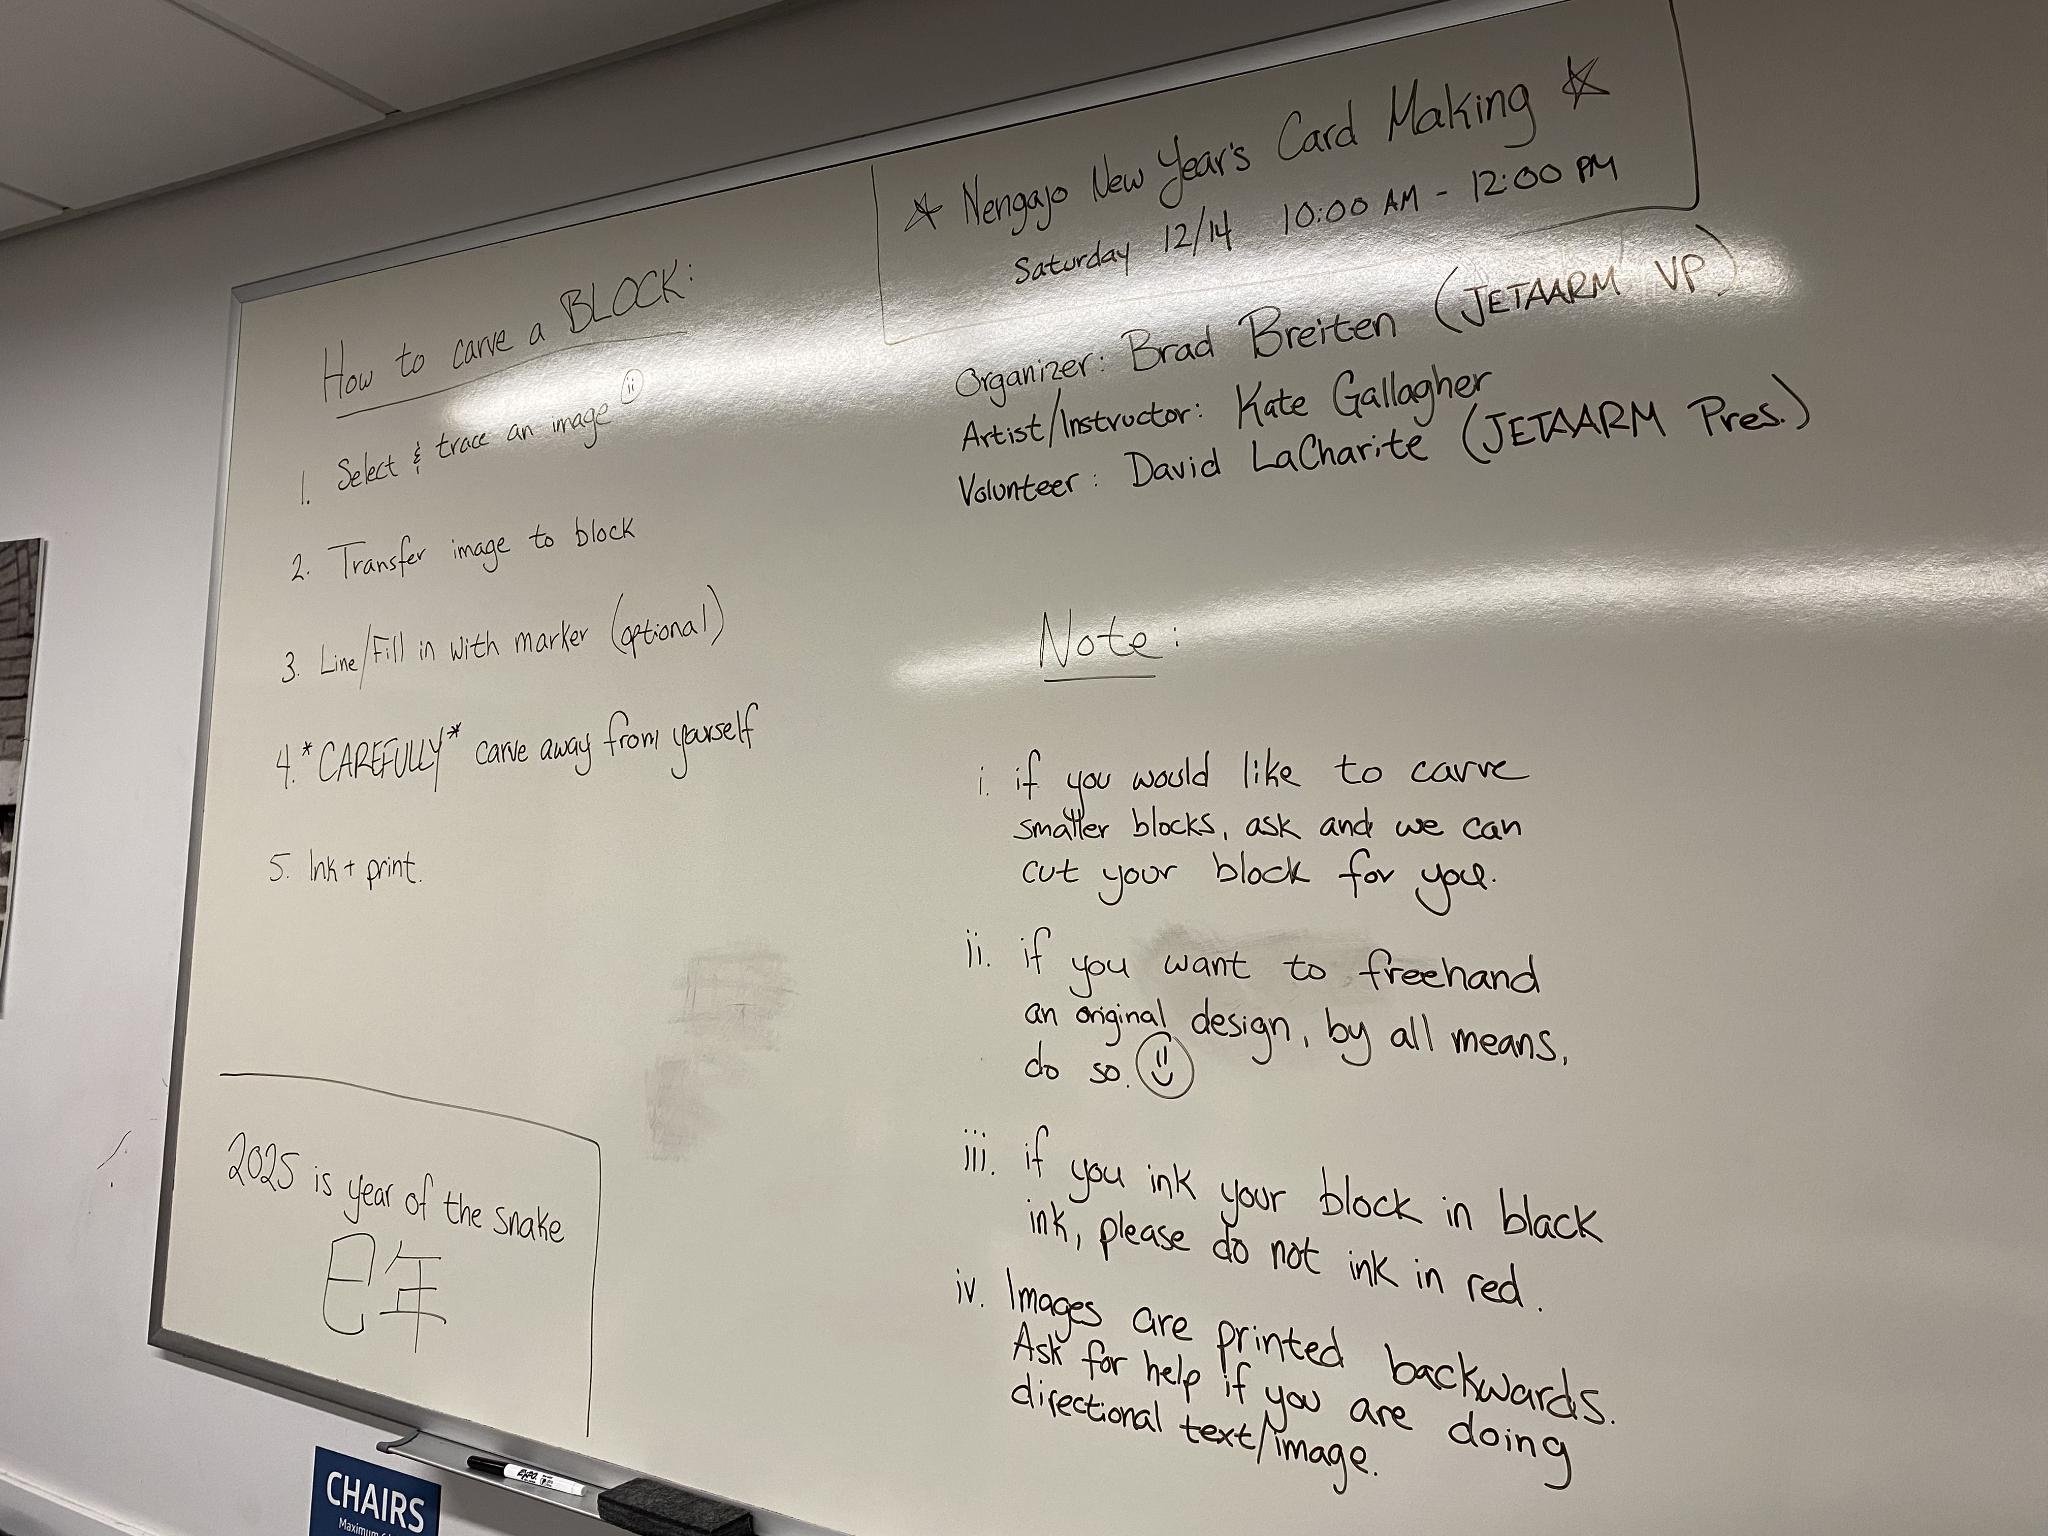 How to carve a BLOCK:
1. Select & trace an image ii
2. Transfer image to block
3. Line/Fill in with marker (optional)
4. *CAREFULLY* carve away from yourself
5. Ink + print.
2025 is year of the snake
巳年
☆ Nengajo New Year's Card Making ☆
Saturday 12/14 10:00 AM - 12:00 PM
Organizer: Brad Breiten (JETAARM VP)
Artist/Instructor: Kate Gallagher
Volunteer: David LaCharite (JETAARM Pres.)
Note:
i. if you would like to carve
smaller blocks, ask and we can
cut your block for you.
ii. if you want to freehand
an original design, by all means,
do so. ☺
iii. if you ink your block in black
ink, please do not ink in red.
iv. Images are printed backwards.
Ask for help if you are doing
directional text/image.
EXPO
CHAIRS
Maximum